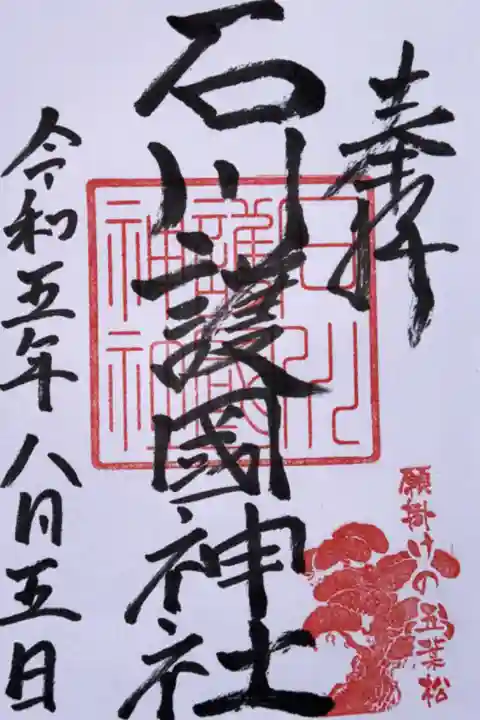 奉拝
石川護國神社
令和五年八月五日
願掛けの五葉松
石川
護國
神社